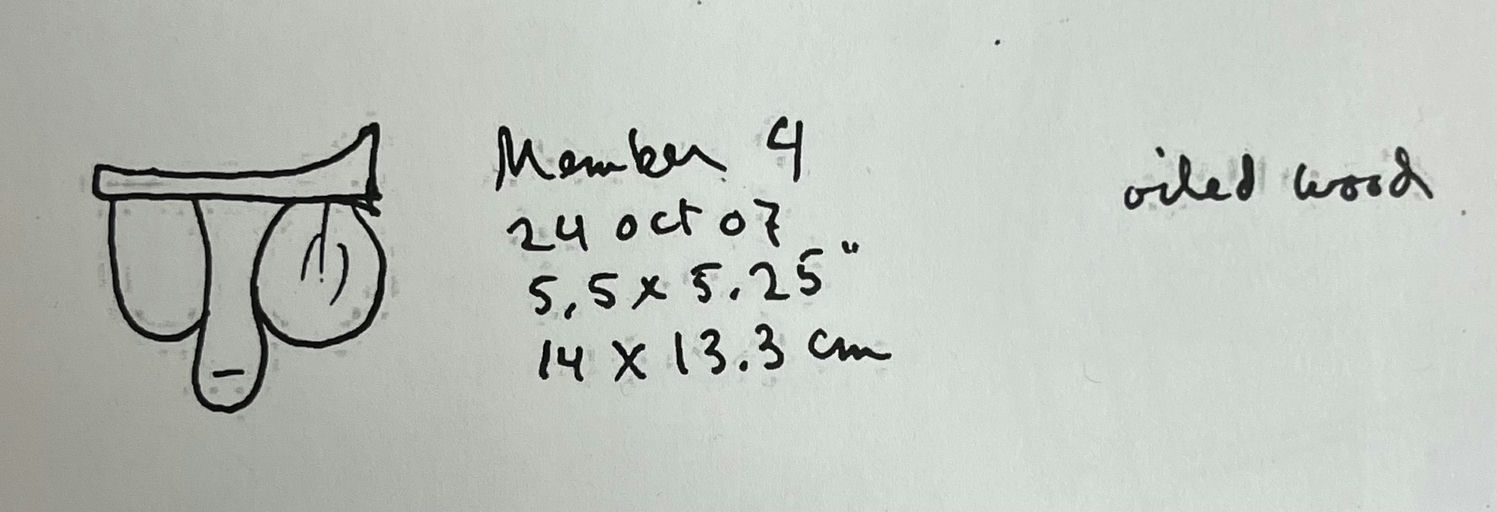 Member 4
24 oct 07
5.5 x 5.25"
14 x 13.3 cm
oiled wood